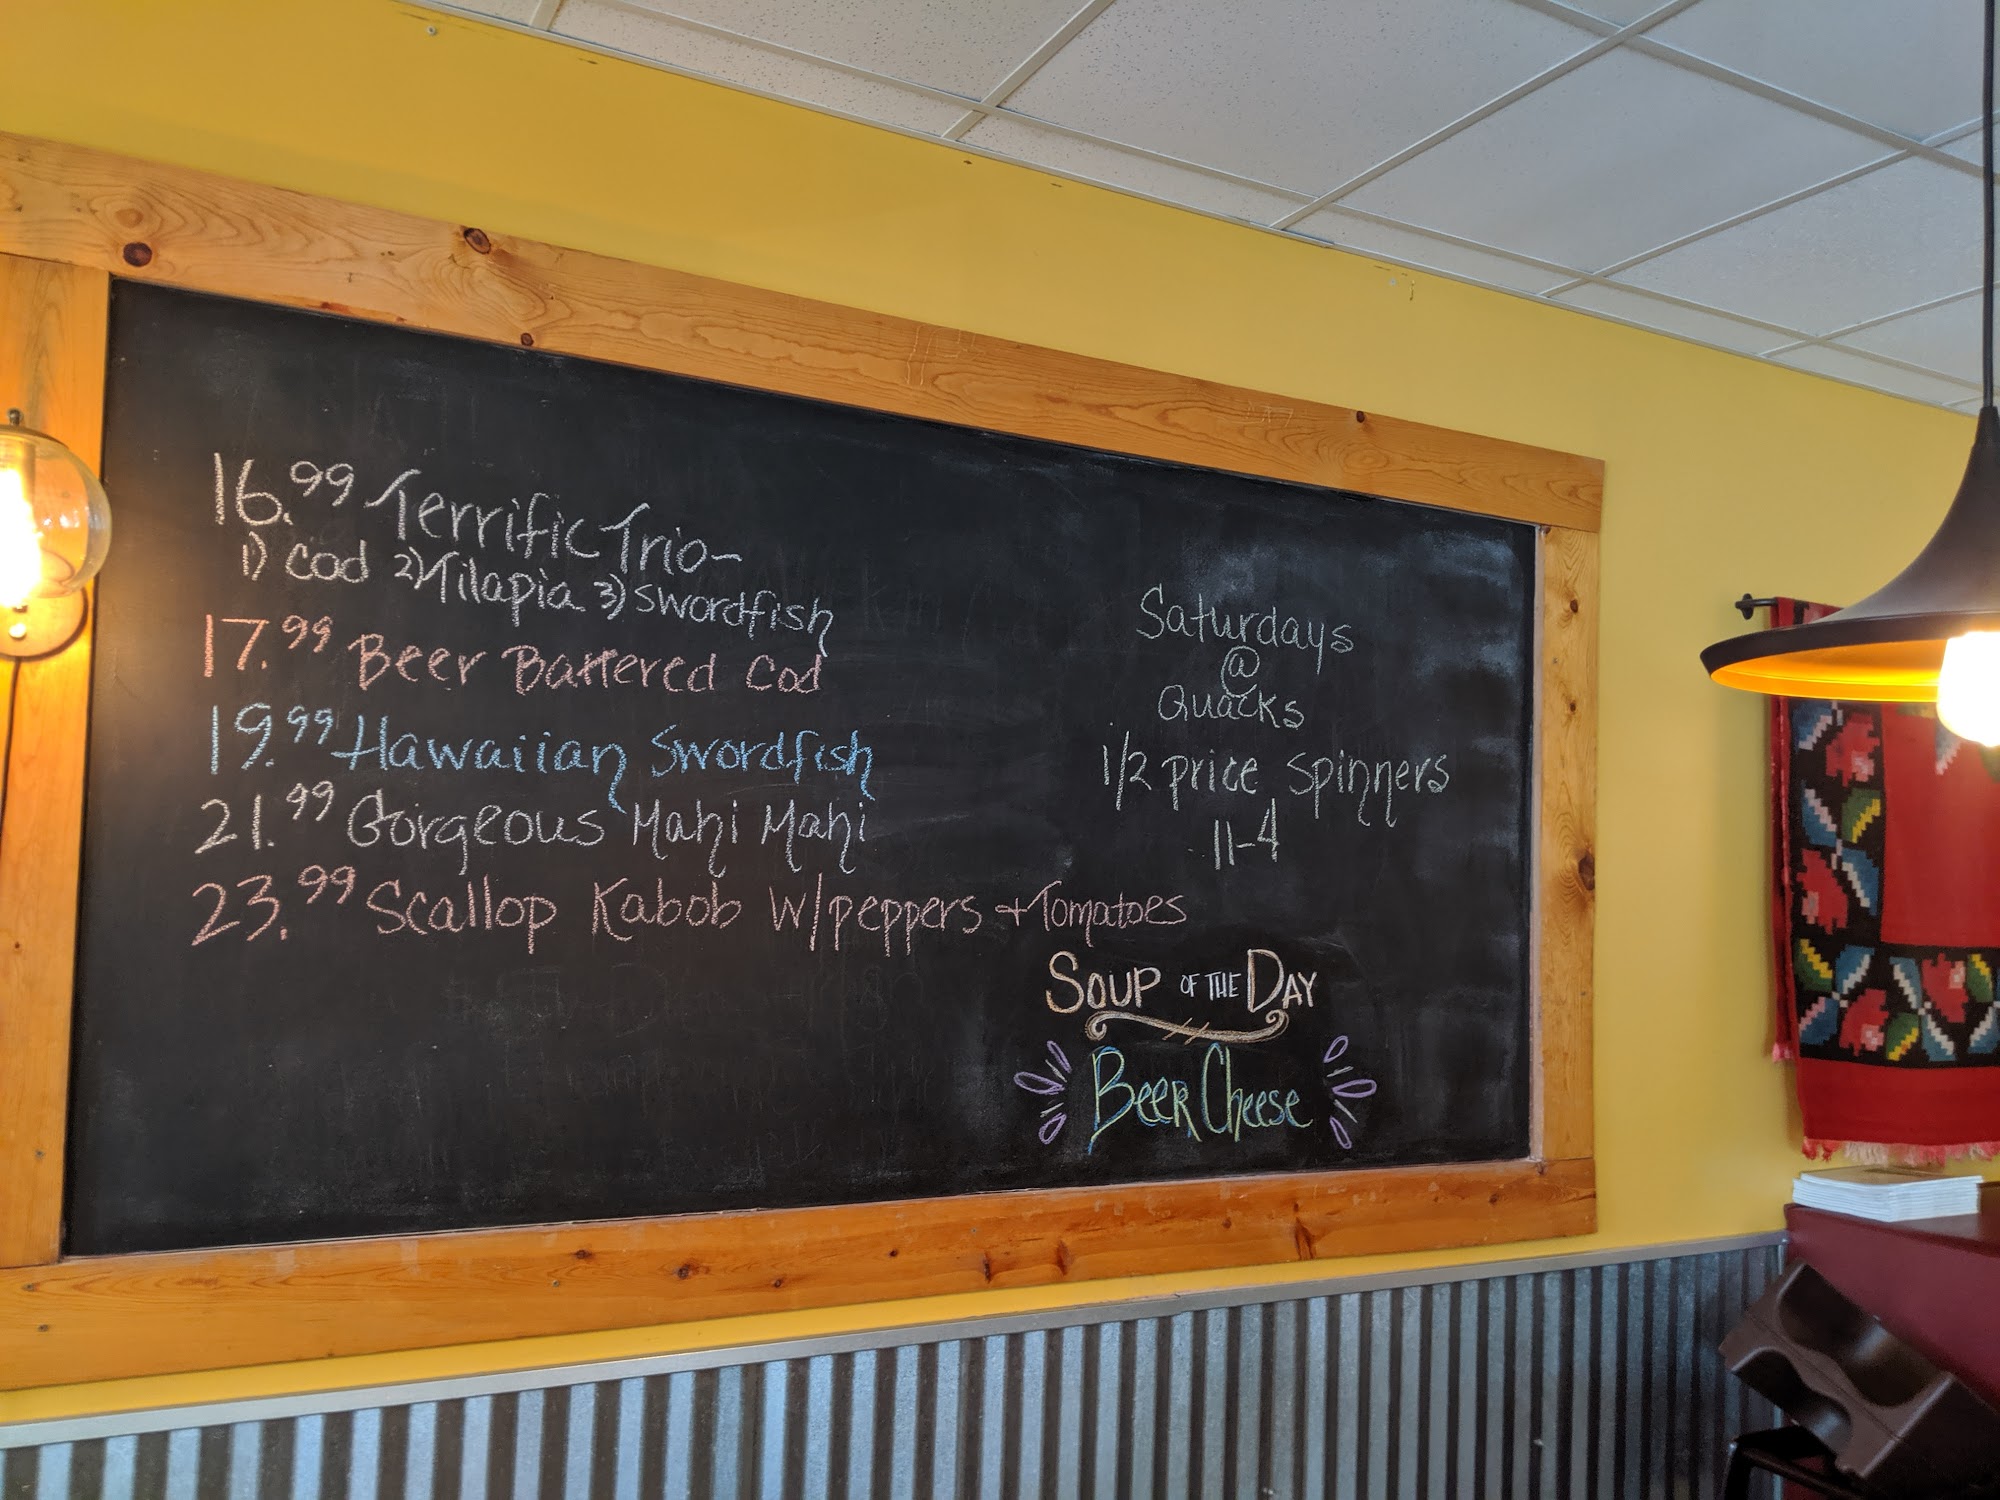 16.99 Terrific Trio-
1) Cod 2) Tilapia 3) Swordfish
17.99 Beer Battered Cod
19.99 Hawaiian Swordfish
21.99 Gorgeous Mahi Mahi
23.99 Scallop Kabob w/peppers + Tomatoes
Saturdays
@
Quacks
1/2 price spinners
11-4
Soup of the Day
Beer Cheese